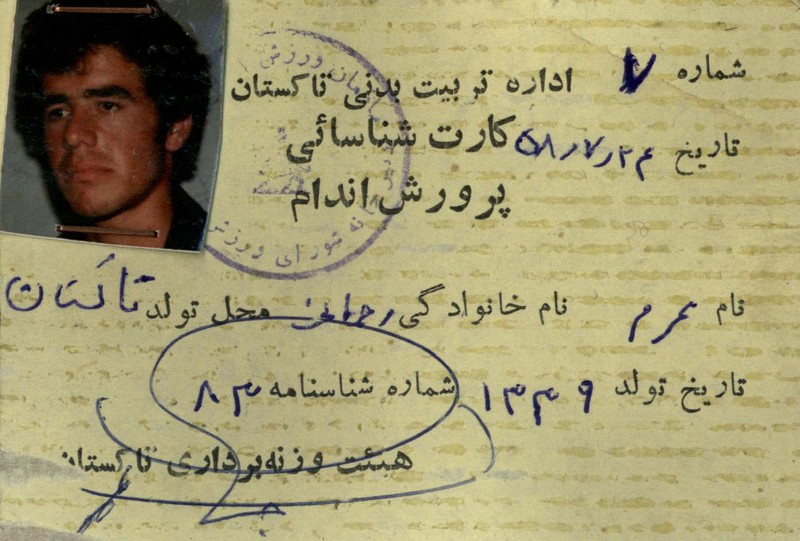 شماره ۷ اداره تربیت بدنی تاکستان
تاریخ ۵۸/۷/۲۴ کارت شناسائی
پرورش اندام
نام محرم نام خانوادگی رحمانی محل تولد تاکستان
تاریخ تولد ۱۳۳۹ شماره شناسنامه ۸۳
هیئت وزنه‌برداری تاکستان
شورای ورزش